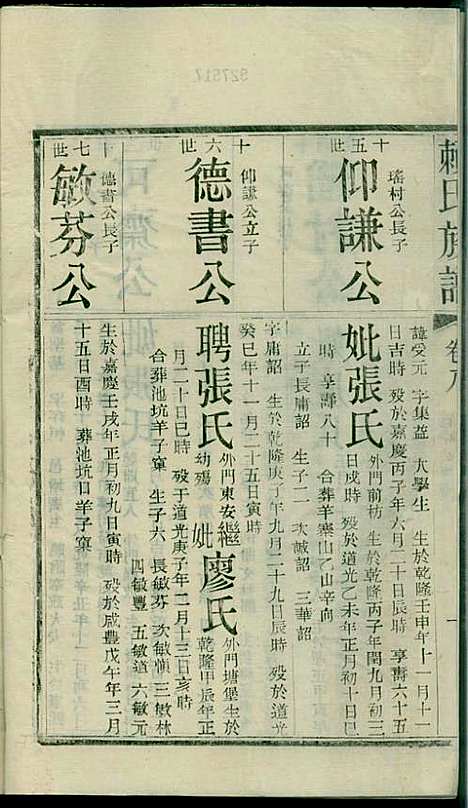 賴氏族譜
卷八
一
十五世
仰謙公
瑤村公長子
諱受元 字集益 大學生 生於乾隆壬申年十一月十一
日吉時 歿於嘉慶丙子年六月二十日辰時 享壽六十五
妣張氏
外門前枋 生於乾隆丙子年閏九月初三
日戌時 歿於道光乙未年正月初十日巳
時 享壽八十 合葬羊寨山乙山辛向
立子長庸詔 生子二 次誠詔 三華詔
十六世
德書公
仰謙公立子
字庸詔 生於乾隆庚子年九月二十九日辰時 歿於道光
癸巳年十一月二十五日寅時
聘張氏
外門東安
幼殤
繼妣廖氏
外門塘堡 生於
乾隆甲辰年正
月二十日巳時 歿于道光庚子年二月十三日亥時
合葬池坑羊子窠 生子六 長敏芬 次敏慎 三敏林
四敏豐 五敏道 六敏元
十七世
敏芬公
德書公長子
生於嘉慶壬戌年正月初九日寅時 歿於咸豐戊午年三月
十五日酉時 葬池坑日羊子窠
927517